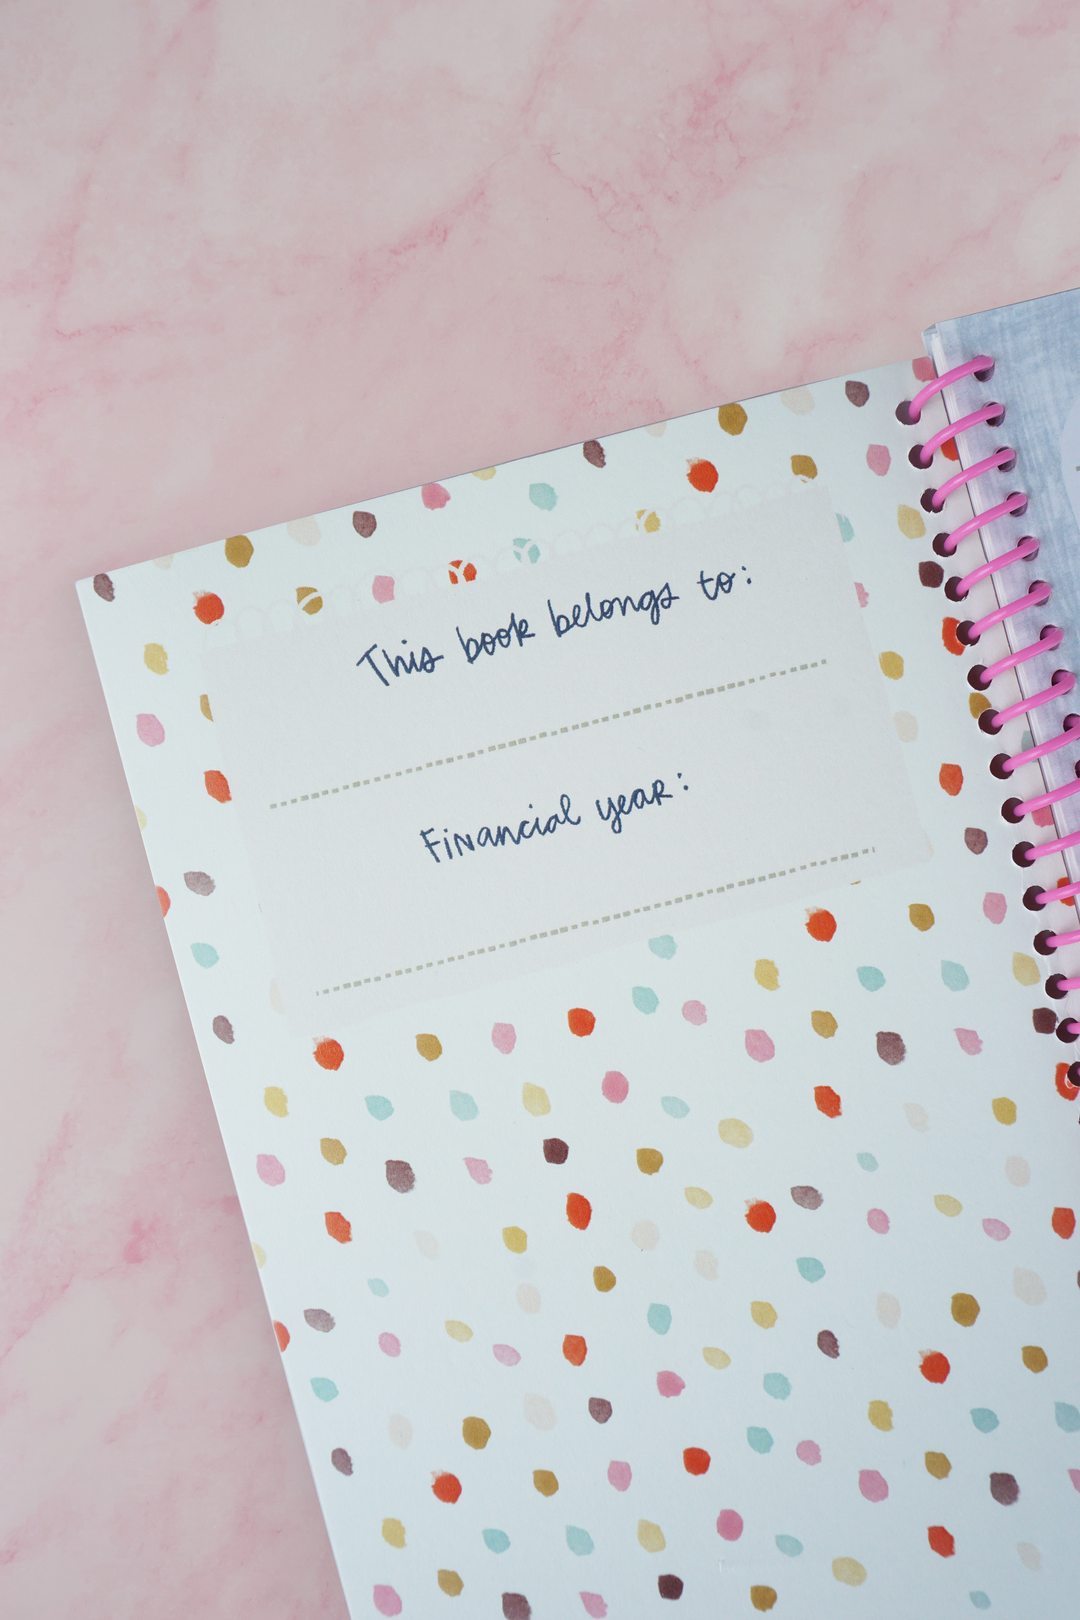 This book belongs to:
Financial year: